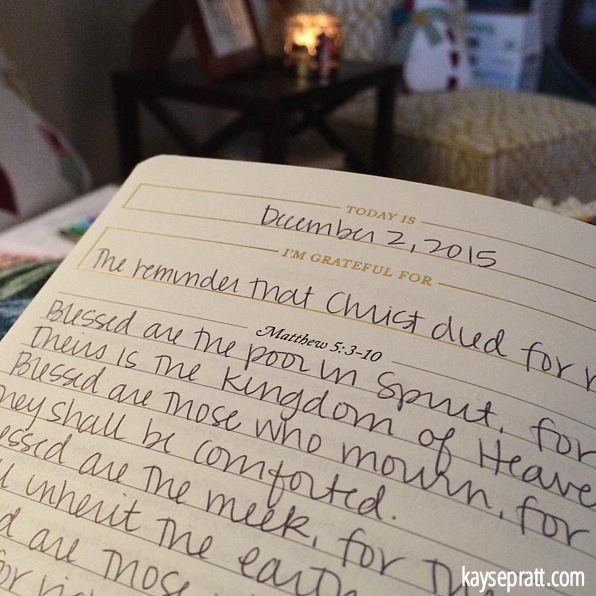 TODAY IS
December 2, 2015
I'M GRATEFUL FOR
The reminder that Christ died for
Matthew 5:3-10
Blessed are the poor in Spirit, for
Theirs is the Kingdom of Heave
Blessed are those who mourn, for
hey shall be comforted.
essed are the meek, for The
inherit the earth
d are those
for
kaysepratt.com